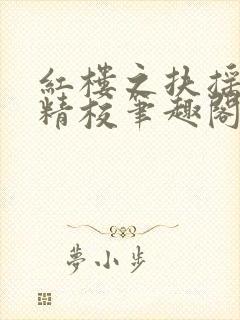 红樓之扶摇
精校筆趣閣
夢小步